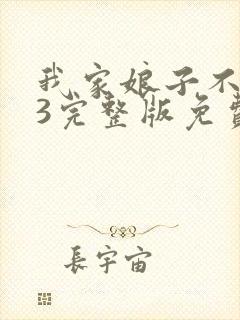 我家娘子不
3完整版免费
長宇宙